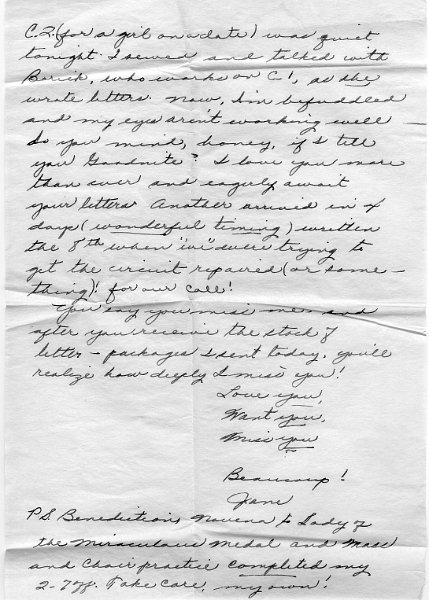 C.2 (for a girl on a date) was quiet
tonight. I sewed and talked with
Barick, who works on C1, as she
wrote letters. Now, I'm befuddled
and my eyes aren't working well
So you mind, honey, if I tell
you Goodnite? I love you more
than ever and eagerly await
your letters. Another arrived in 4
days (wonderful timing) written
the 8th when "we" were trying to
get the circuit repaired (or some-
thing)! for our call!
You say you miss me - and
after you receive the stack of
letter - packages I sent today, you'll
realize how deeply I miss you!
Love you,
Want you,
Miss you
Beaucoup!
Jane
P.S. Benediction, Novena to Lady of
the Miraculous Medal and Mass
and Choir practice completed my
2-7 off. Take care, my own!